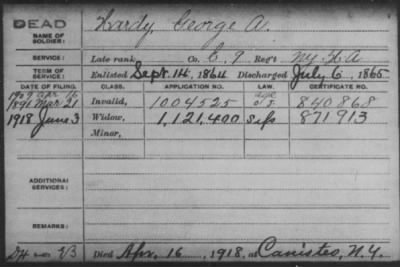 DEAD Hardy, George A.
NAME OF SOLDIER:
SERVICE: Late rank Co. C. 9 Reg't NY H A
TERM OF SERVICE: Enlisted Sept. 14, 1864 Discharged July 6, 1865
DATE OF FILING. CLASS. APPLICATION NO. LAW. CERTIFICATE NO.
1891 Mar 21 Invalid, 1004525 840868
1918 June 3 Widow, 1,121,400 871913
Minor,
ADDITIONAL SERVICES:
REMARKS:
Died Apr. 16, 1918, at Canisteo, N.Y.